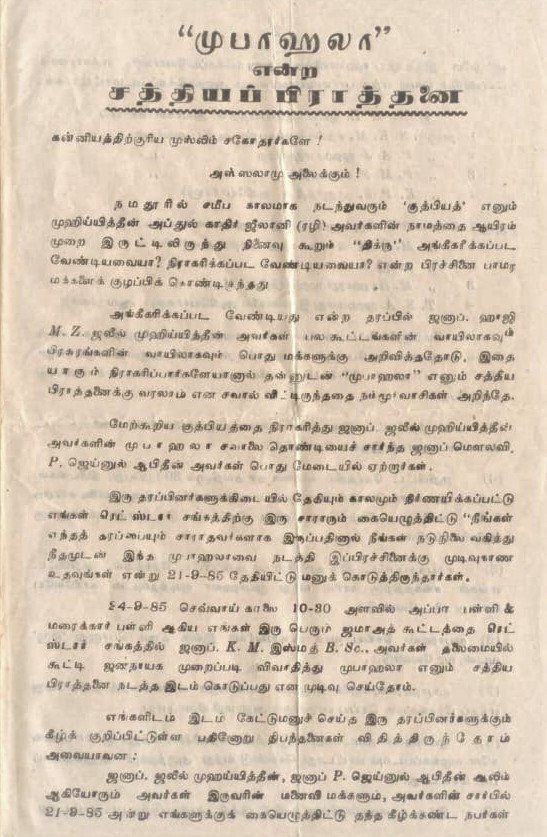 “முபாஹலா”
என்ற
சத்தியப்பிராத்தனை
கன்னியத்திற்குரிய முஸ்லிம் சகோதரர்களே !
அஸ்ஸலாமு அலைக்கும் !
நமதூரில் சமீப காலமாக நடந்துவரும் ‘குத்பியத்’ எனும்
முஹிய்யித்தீன் அப்துல் காதிர் ஜீலானி (ரழி) அவர்களின் நாமத்தை ஆயிரம்
முறை இருட்டிலிருந்து நினைவு கூறும் “திக்ரு” அங்கீகரிக்கப்பட
வேண்டியவையா? நிராகரிக்கப்பட வேண்டியவையா? என்ற பிரச்சினை பாமர
மக்களைக் குழப்பிக் கொண்டிருந்தது
அங்கீகரிக்கப்பட வேண்டியது என்ற தரப்பில் ஜனாப். ஹாஜி
M. Z. ஜலீல் முஹிய்யித்தீன் அவர்கள் பலகூட்டங்களின் வாயிலாகவும்
பிரசுரங்களின் வாயிலாகவும் பொது மக்களுக்கு அறிவித்ததோடு, இதை
யாகும் நிராகரிப்பார்களேயானால் தன்னுடன் “முபாஹலா” எனும் சத்திய
பிராத்தனைக்கு வரலாம் என சவால் விட்டிருந்ததை நம்மூர்வாசிகள் அறிந்தே.
மேற்கூறிய குத்பியத்தை நிராகரித்து ஜனாப். ஜலீல் முஹிய்யித்தீன்
அவர்களின் முபாஹலா சவாலை தொண்டியைச் சார்ந்த ஜனாப் மௌலவி,
P. ஜெய்னுல் ஆபிதீன் அவர்கள் பொது மேடையில் ஏற்றார்கள்.
இரு தரப்பினர்களுக்கிடையில் தேதியும் காலமும் நிர்ணயிக்கப்பட்டு
எங்கள் ரெட் ஸ்டார் சங்கத்திற்கு இரு சாராரும் கையெழுத்திட்டு “நீங்கள்
எந்தத் தரப்பையும் சாராதவர்களாக இருப்பதினால் நீங்கள் நடுநிலை வகித்து
நீதமுடன் இந்த முபாஹலாவை நடத்தி இப்பிரச்சினைக்கு முடிவுகாண
உதவுங்கள் என்று 21-9-85 தேதியிட்டு மனுக் கொடுத்திருந்தார்கள்.
24-9-85 செவ்வாய் காலை 10-30 அளவில் அப்பா பள்ளி &
மரைக்கார் பள்ளி ஆகிய எங்கள் இரு பெரும் ஜமாஅத் கூட்டத்தை ரெட்
ஸ்டார் சங்கத்தில் ஜனாப். K. M. இஸ்மத் B. Sc., அவர்கள் தலைமையில்
கூட்டி ஜனநாயக முறைப்படி விவாதித்து முபாஹலா எனும் சத்திய
பிராத்தனை நடத்த இடம் கொடுப்பது என முடிவு செய்தோம்.
எங்களிடம் இடம் கேட்டுமனுச் செய்த இரு தரப்பினர்களுக்கும்
கீழ்க் குறிப்பிட்டுள்ள பதினோறு நிபந்தனைகள் விதித்திருந்தோம்
அவையாவன :
ஜனாப். ஜலீல் முஹய்யித்தீன், ஜனாப் P. ஜெய்னுல் ஆபிதீன் ஆலிம்
ஆகியோரும் அவர்கள் இருவரின் மனைவி மக்களும், அவர்களின் சார்பில்
21-9-85 அன்று எங்களுக்குக் கையெழுத்திட்டு தந்த கீழ்க்கண்ட நபர்கள்